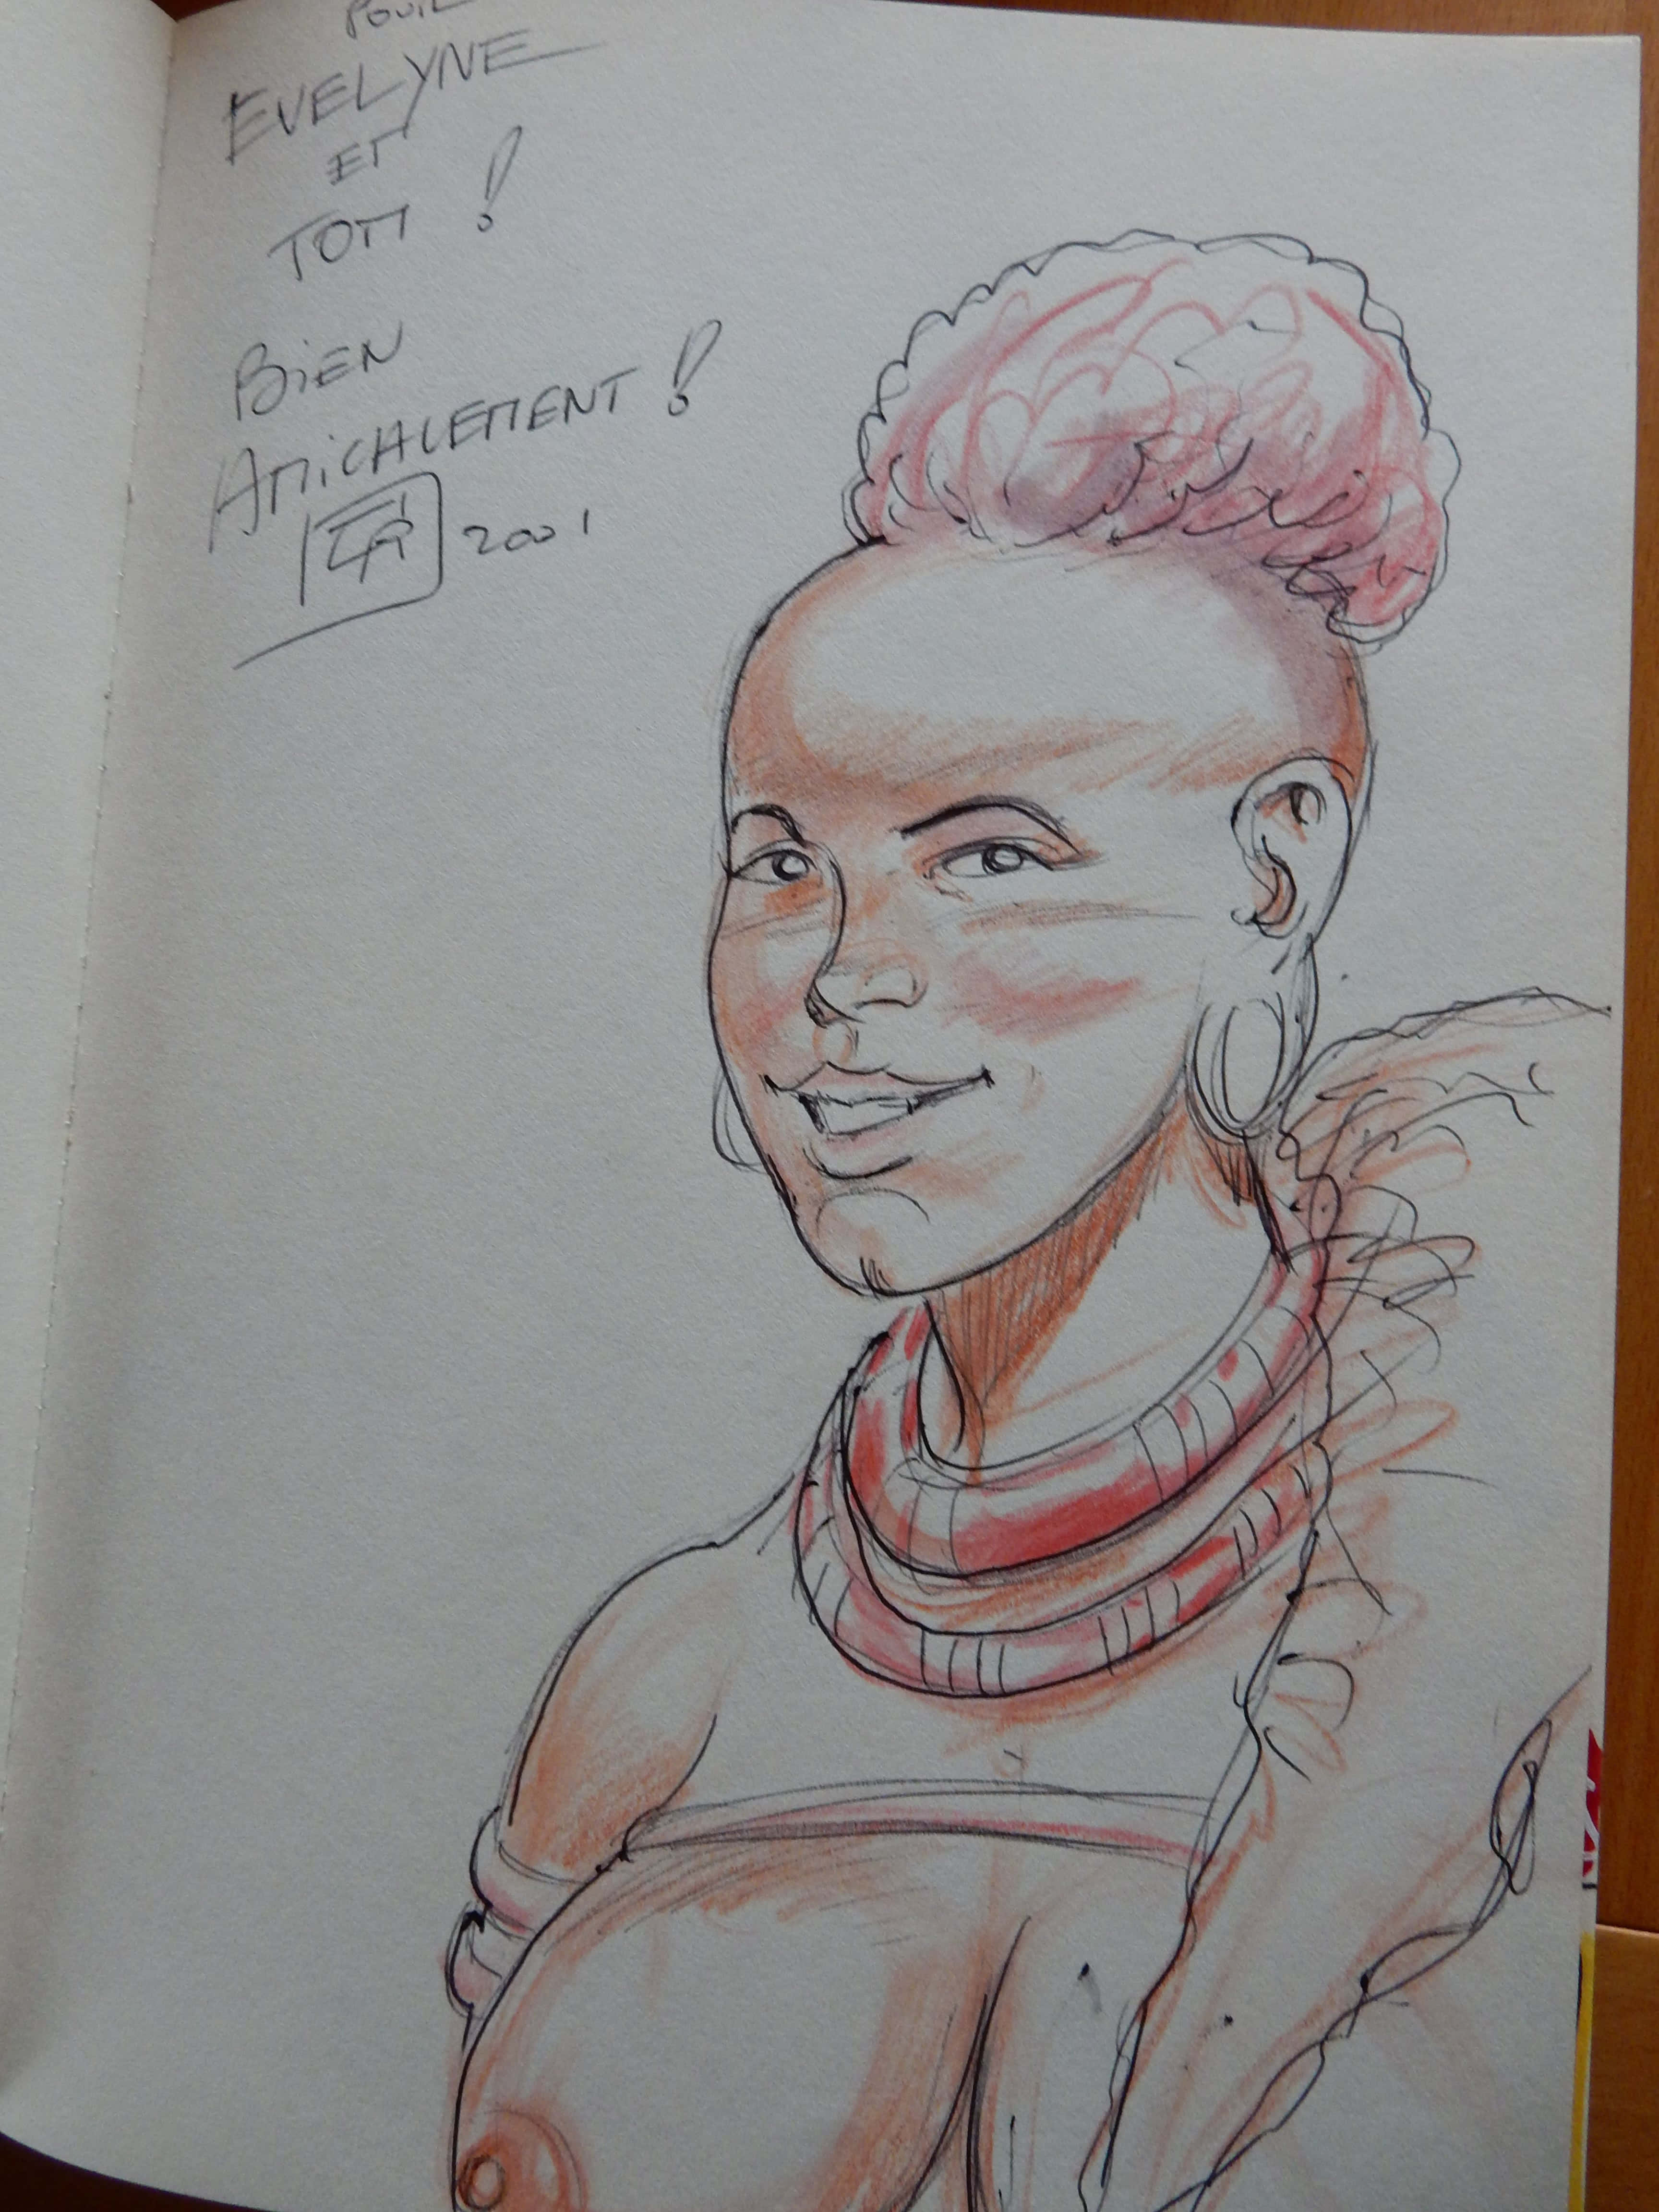 POUR
EVELYNE
ET
TOM !
BIEN
AMICALEMENT !
2001